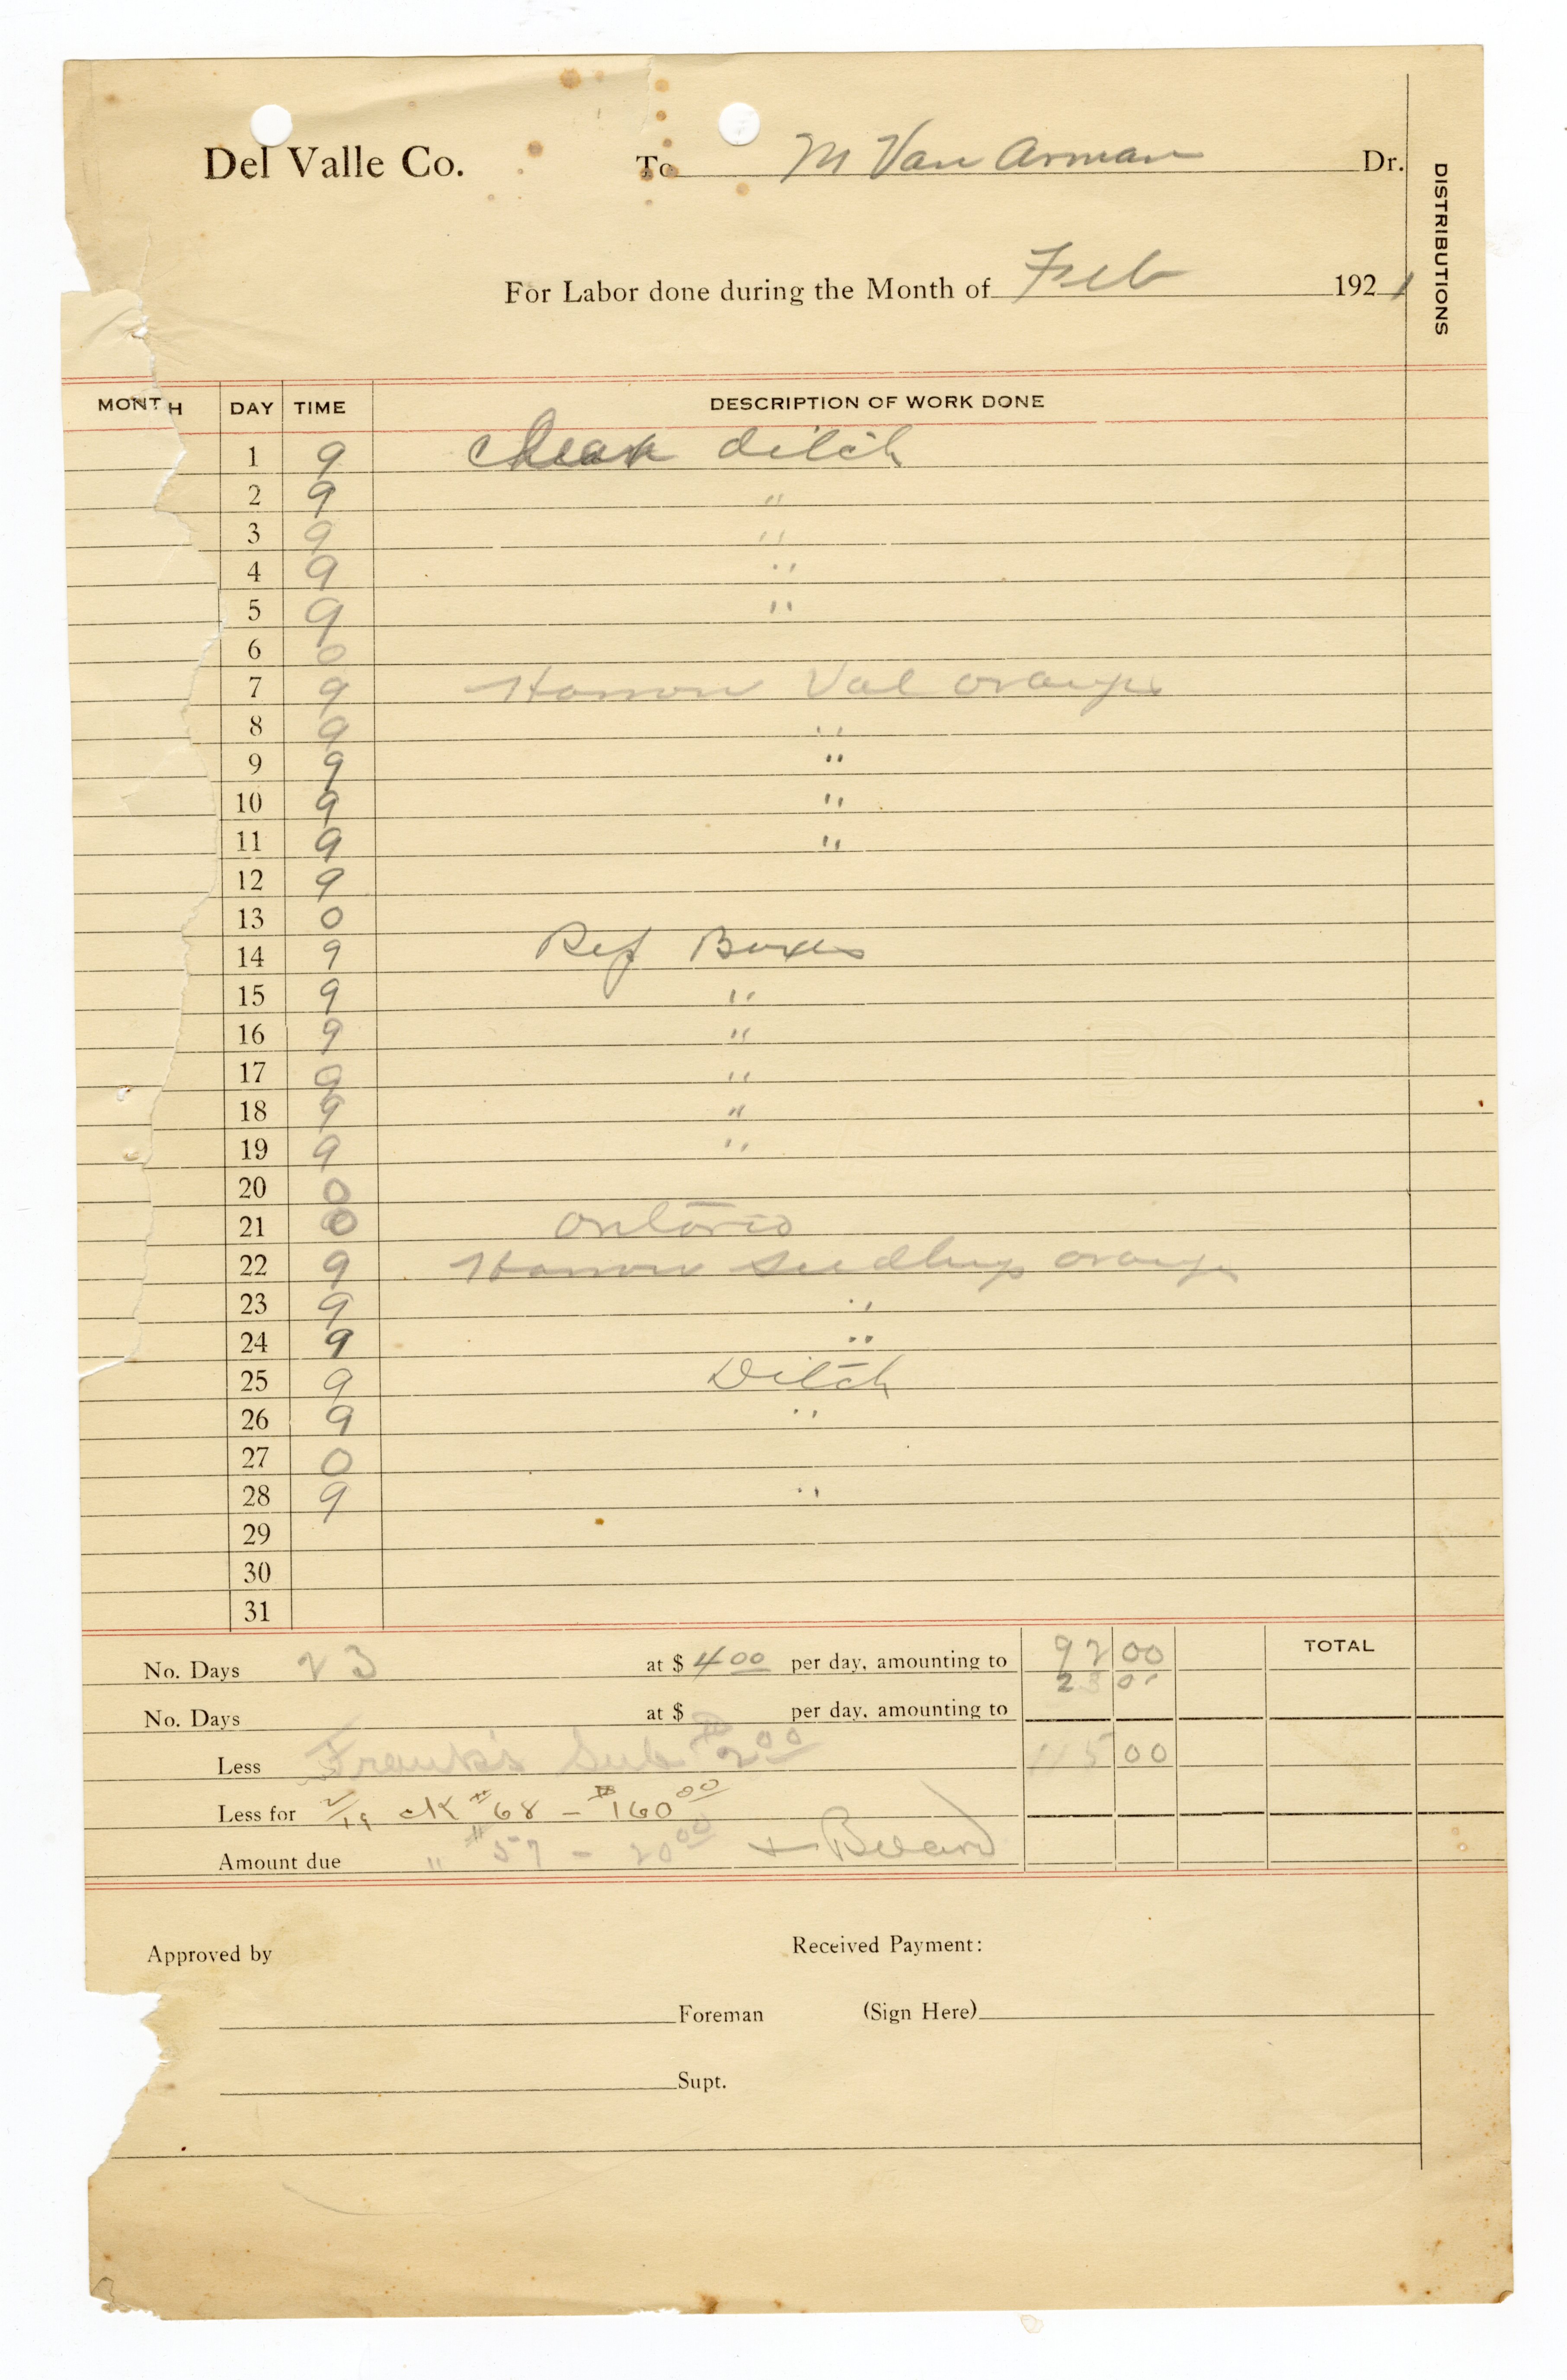 Del Valle Co. To M Van Arman Dr.
DISTRIBUTIONS
For Labor done during the Month of Feb 1921
MONTH DAY TIME DESCRIPTION OF WORK DONE
1 9 Clean ditch
2 9 "
3 9 "
4 9 "
5 9 "
6 0
7 9 Harrow Val oranges
8 9 "
9 9 "
10 9 "
11 9 "
12 9
13 0
14 9 Rep Boxes
15 9 "
16 9 "
17 9 "
18 9 "
19 9 "
20 0
21 0 Ontario
22 9 Harrow Seedlings orange
23 9 "
24 9 "
25 9 Ditch
26 9 "
27 0
28 9 "
29
30
31
No. Days 23 at $ 4 00 per day, amounting to 92 00 TOTAL
23 0
No. Days at $ per day, amounting to
Less Frank's Sub $2 00 115 00
Less for 2/19 ck #68 - $160 00
Amount due " #57 - 20 00 + Board
Approved by Received Payment:
Foreman (Sign Here)
Supt.